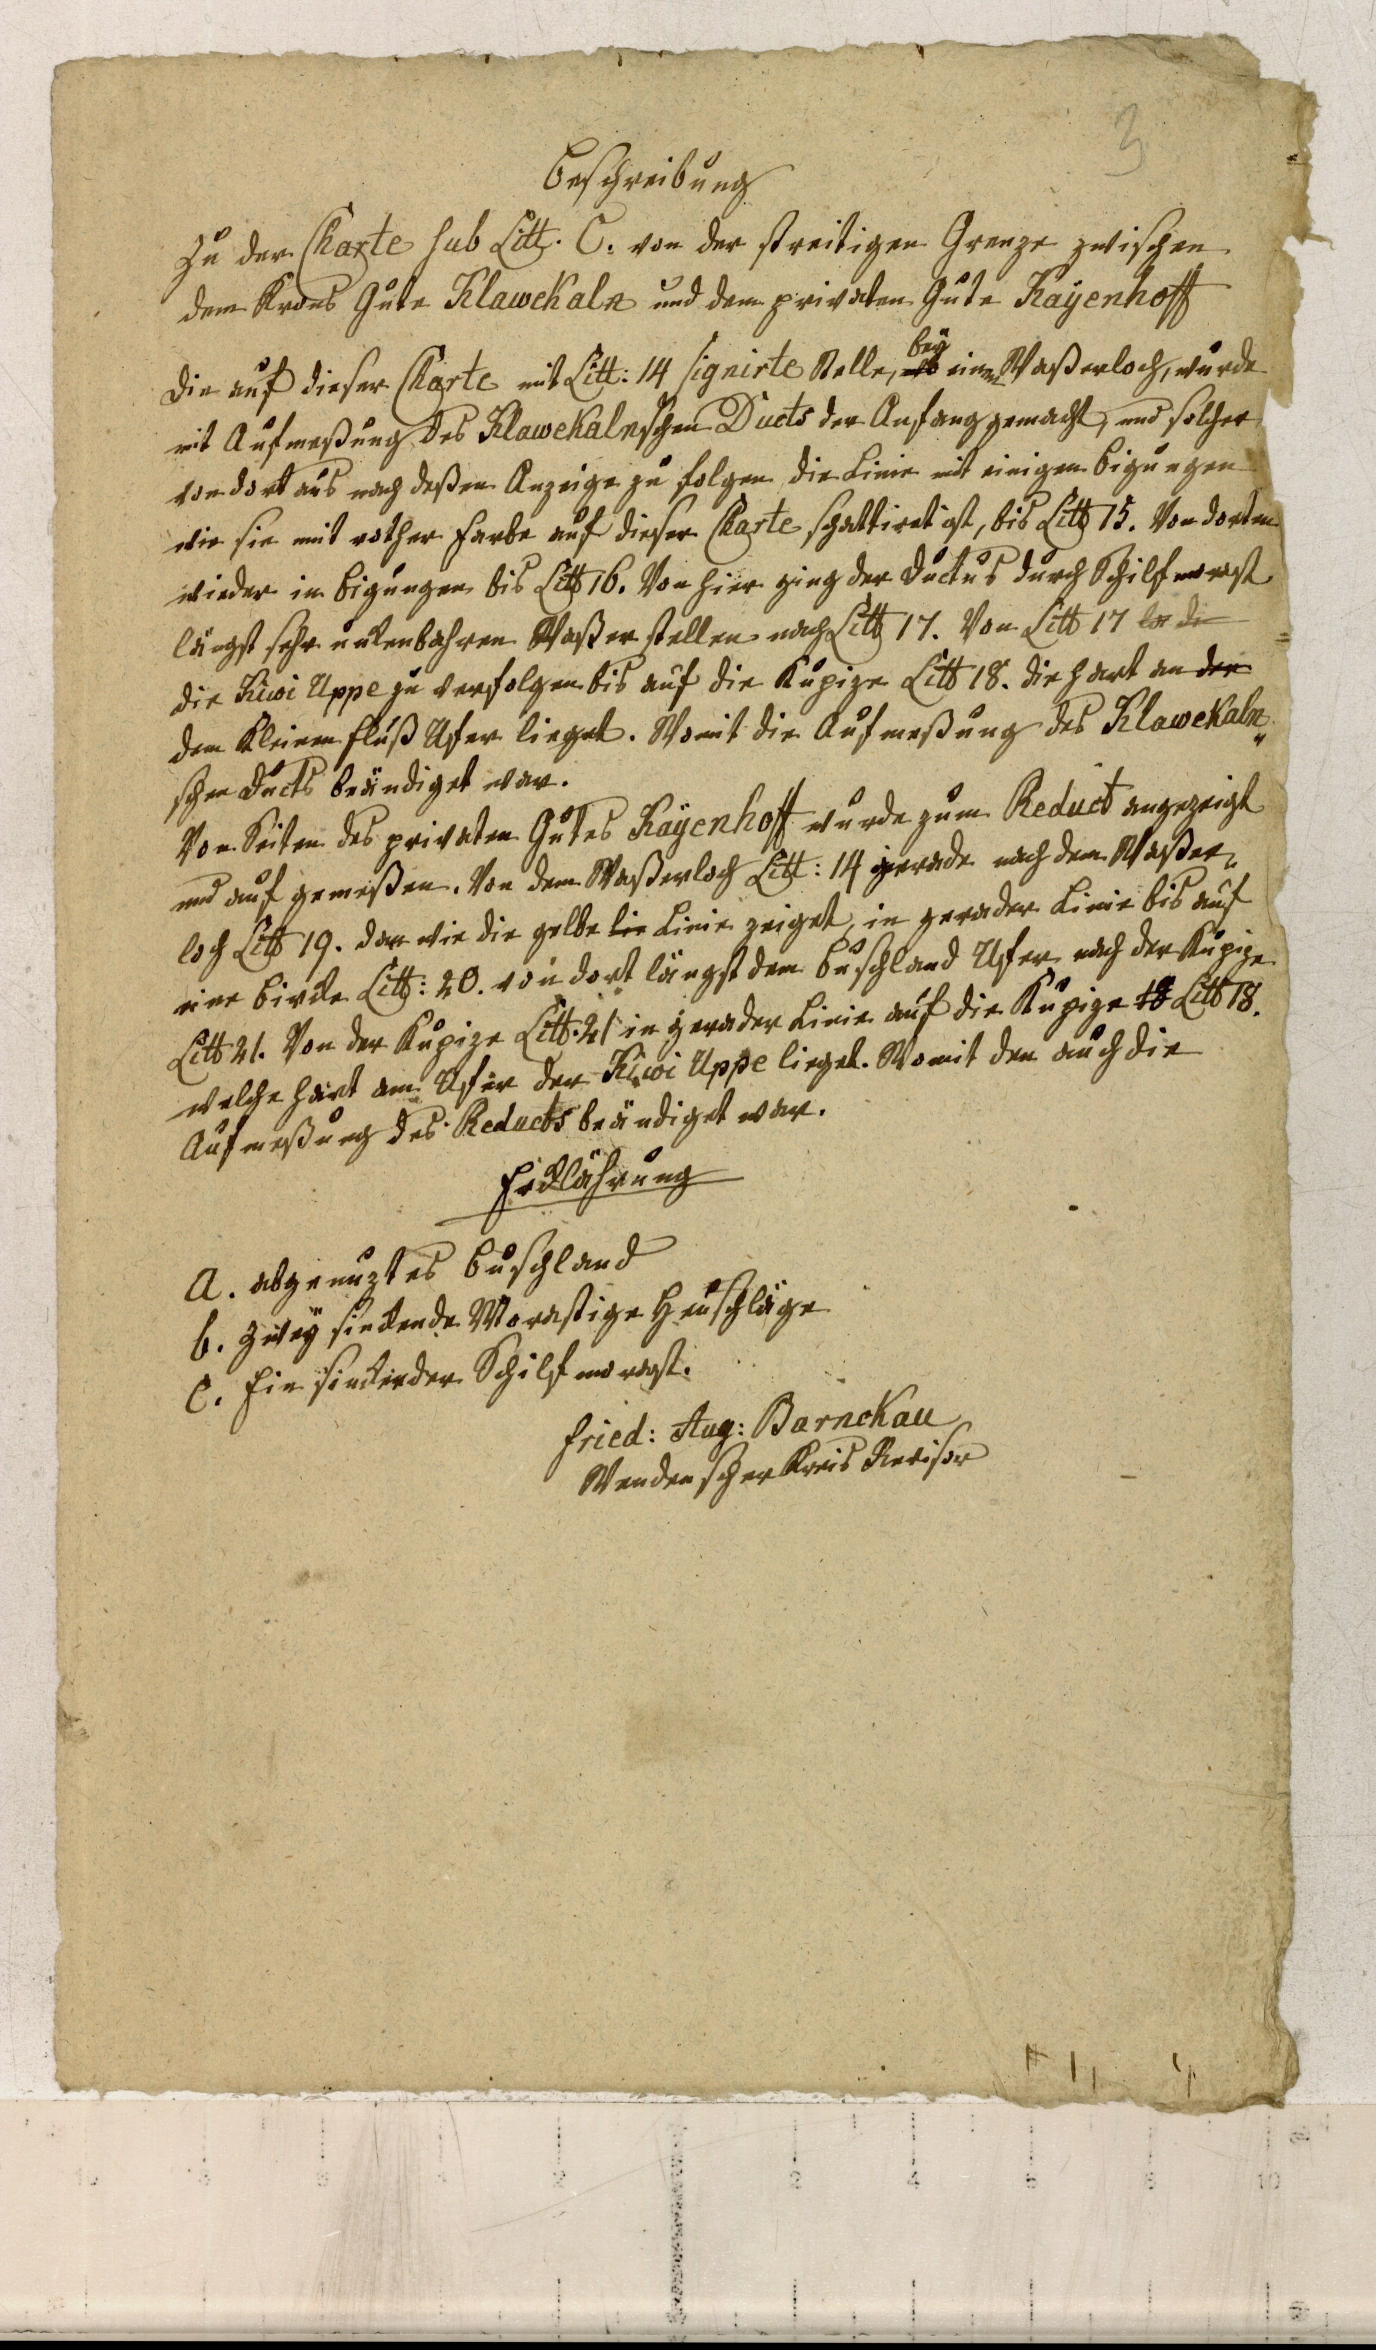 3
Beschreibung
Zu der Charte sub Litt. C. von der streitigen Grenze zwischen
dem Krons Gute Klawekaln und dem privaten Gute Kayenhoff
Die auf dieser Charte mit Litt: 14 signirte Stelle, bey einem Waßerloch, wurde
mit Aufmeßung des Klawekalnschen Ducts der Anfang gemacht, und solcher
von dort aus nach deßen Anzeige zu folgen die Linie mit einigen Bigungen
wie sie mit rother Farbe auf dieser Charte schattiret ist, bis Litt 15. Von dorten
wieder in Bigungen bis Litt 16. Von hier ging der Ductus durch Schilfmorast
längst sehr Waßer stellen nach Litt 17. Von Litt 17
die Kiwi Uppe zu verfolgen bis auf die Kupize Litt 18. die hart an der
dem kleinen Fluß Ufer lieget. Womit die Aufmeßung des Klawekaln„
schen Ducts beändiget war.
Von Seiten des privaten Gutes Kayenhoff wurde zum Reduct angezeigt
und auf gemeßen. Von dem Waßerloch Litt: 14 gerade nach dem Waßer„
loch Litt 19. dan wie die gelbe Lin Linie zeiget, in gerader Linie bis auf
eine Bircke Litt: 20. von dort längst dem Buschland Ufer nach der Kupize
Litt 21. Von der Kupize Litt. 21 in gerader Linie auf die Kupize 18 Litt 18.
welche hart am Ufer der Kiwi Uppe lieget. Womit den auch die
Aufmeßung des Reducts beändiget war.
Ercklährung
A. abgenuztes Buschland
b. Zwey sinckende Morastige Heuschläge
C. Ein sinckender Schilfmorast.
Fried: Aug: Barnckau
Wendenscher Kreis Revisor